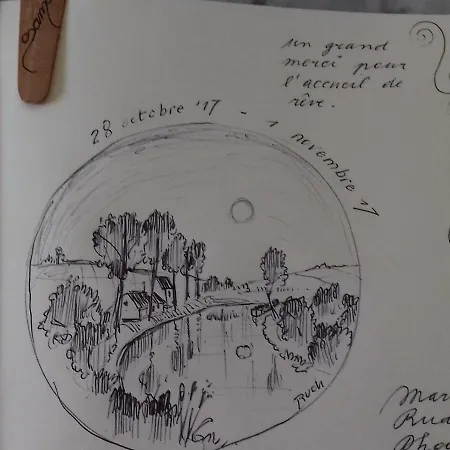 un grand
merci pour
l'accueil de
rêve.
28 octobre '17 - 1 novembre 17
Ruch
Mar
Rud